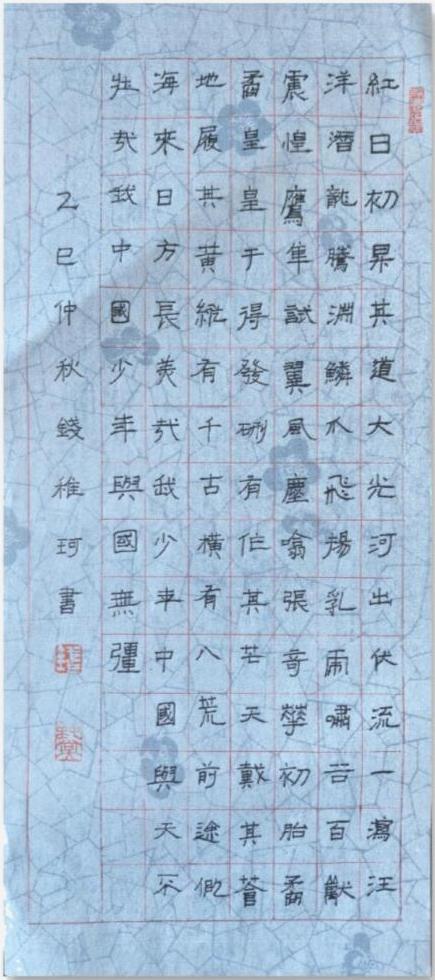 紅日初昇其道大光河出伏流一瀉汪
洋潛龍騰淵鱗爪飛揚乳虎嘯谷百獸
震惶鷹隼試翼風塵噏張奇華初胎矞
矞皇皇于得發硎有作其芒天戴其蒼
地履其黃縱有千古橫有八荒前途似
海來日方長美哉我少年中國與天不
壯哉我中國少年與國無疆
乙巳仲秋錢稚珂書